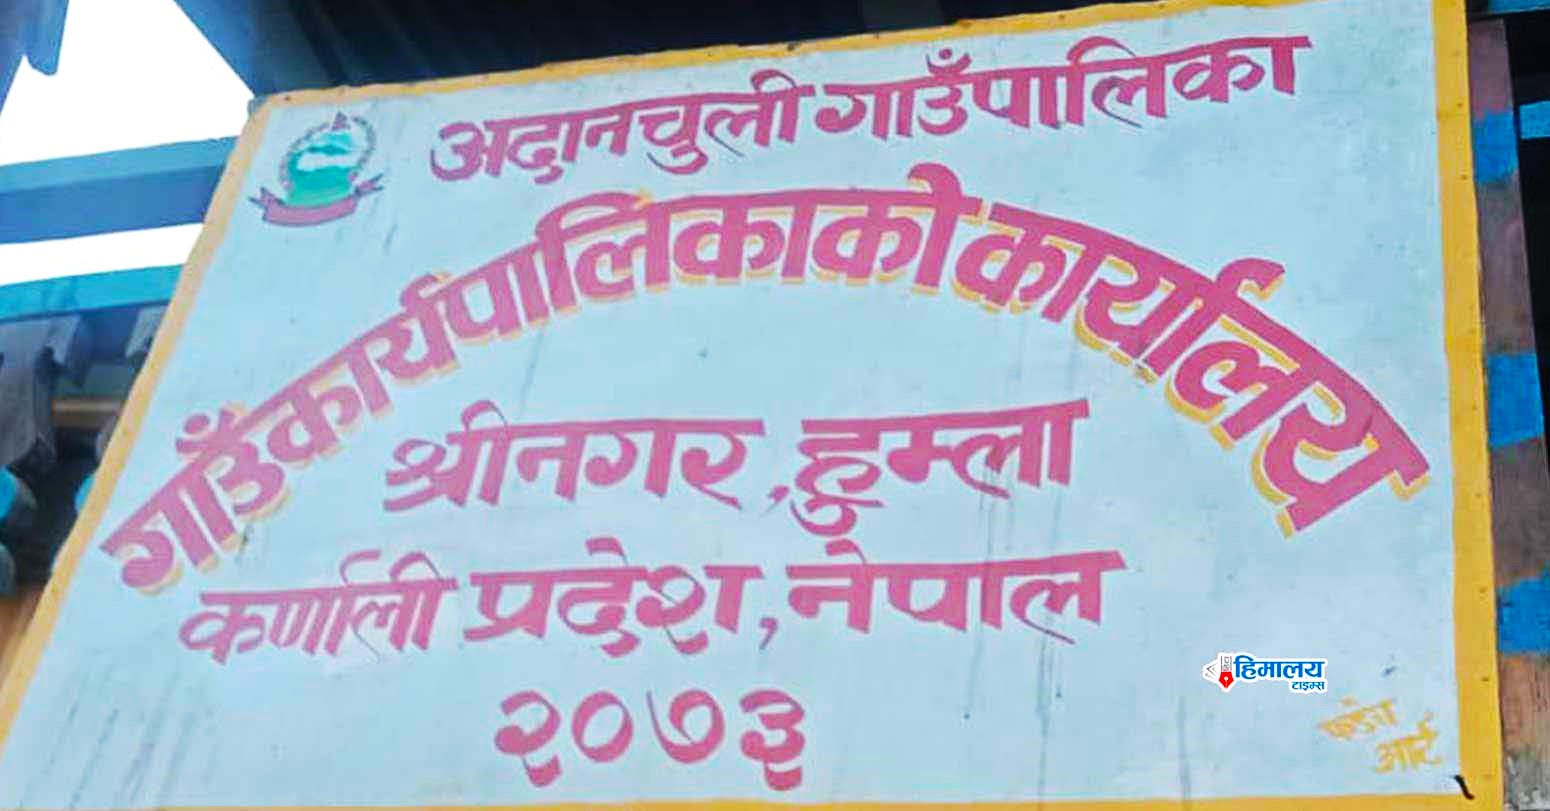 अदानचुली गाउँपालिका
गाउँकार्यपालिकाको कार्यालय
श्रीनगर, हुम्ला
कर्णाली प्रदेश, नेपाल
२०७३
हिमालय
टाइम्स
आर्ट